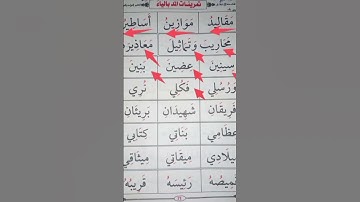 تمرينات المد بالياء
مَقَالِيدُ مَوَازِينُ أَسَاطِيرُ
مَحَارِيبَ وَتَمَاثِيلَ مَعَاذِيرَهُ
سِنِينَ عِضِينَ بَنِينَ
وَرُسُلِي فَكُلِي نُرِي
فَرِيقَانِ شَهِيدَانِ بَرِيئَانِ
عِظَامِي بَنَاتِي كِتَابِي
مِيلَادِي مِيقَاتِي مِيثَاقِي
قَمِيصُهُ رَئِيسَهُ قَرِيبُهُ